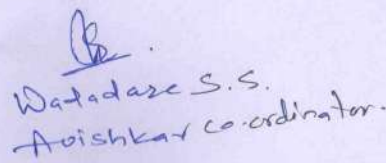 Watadare S.S.
Avishkar co-ordinator.